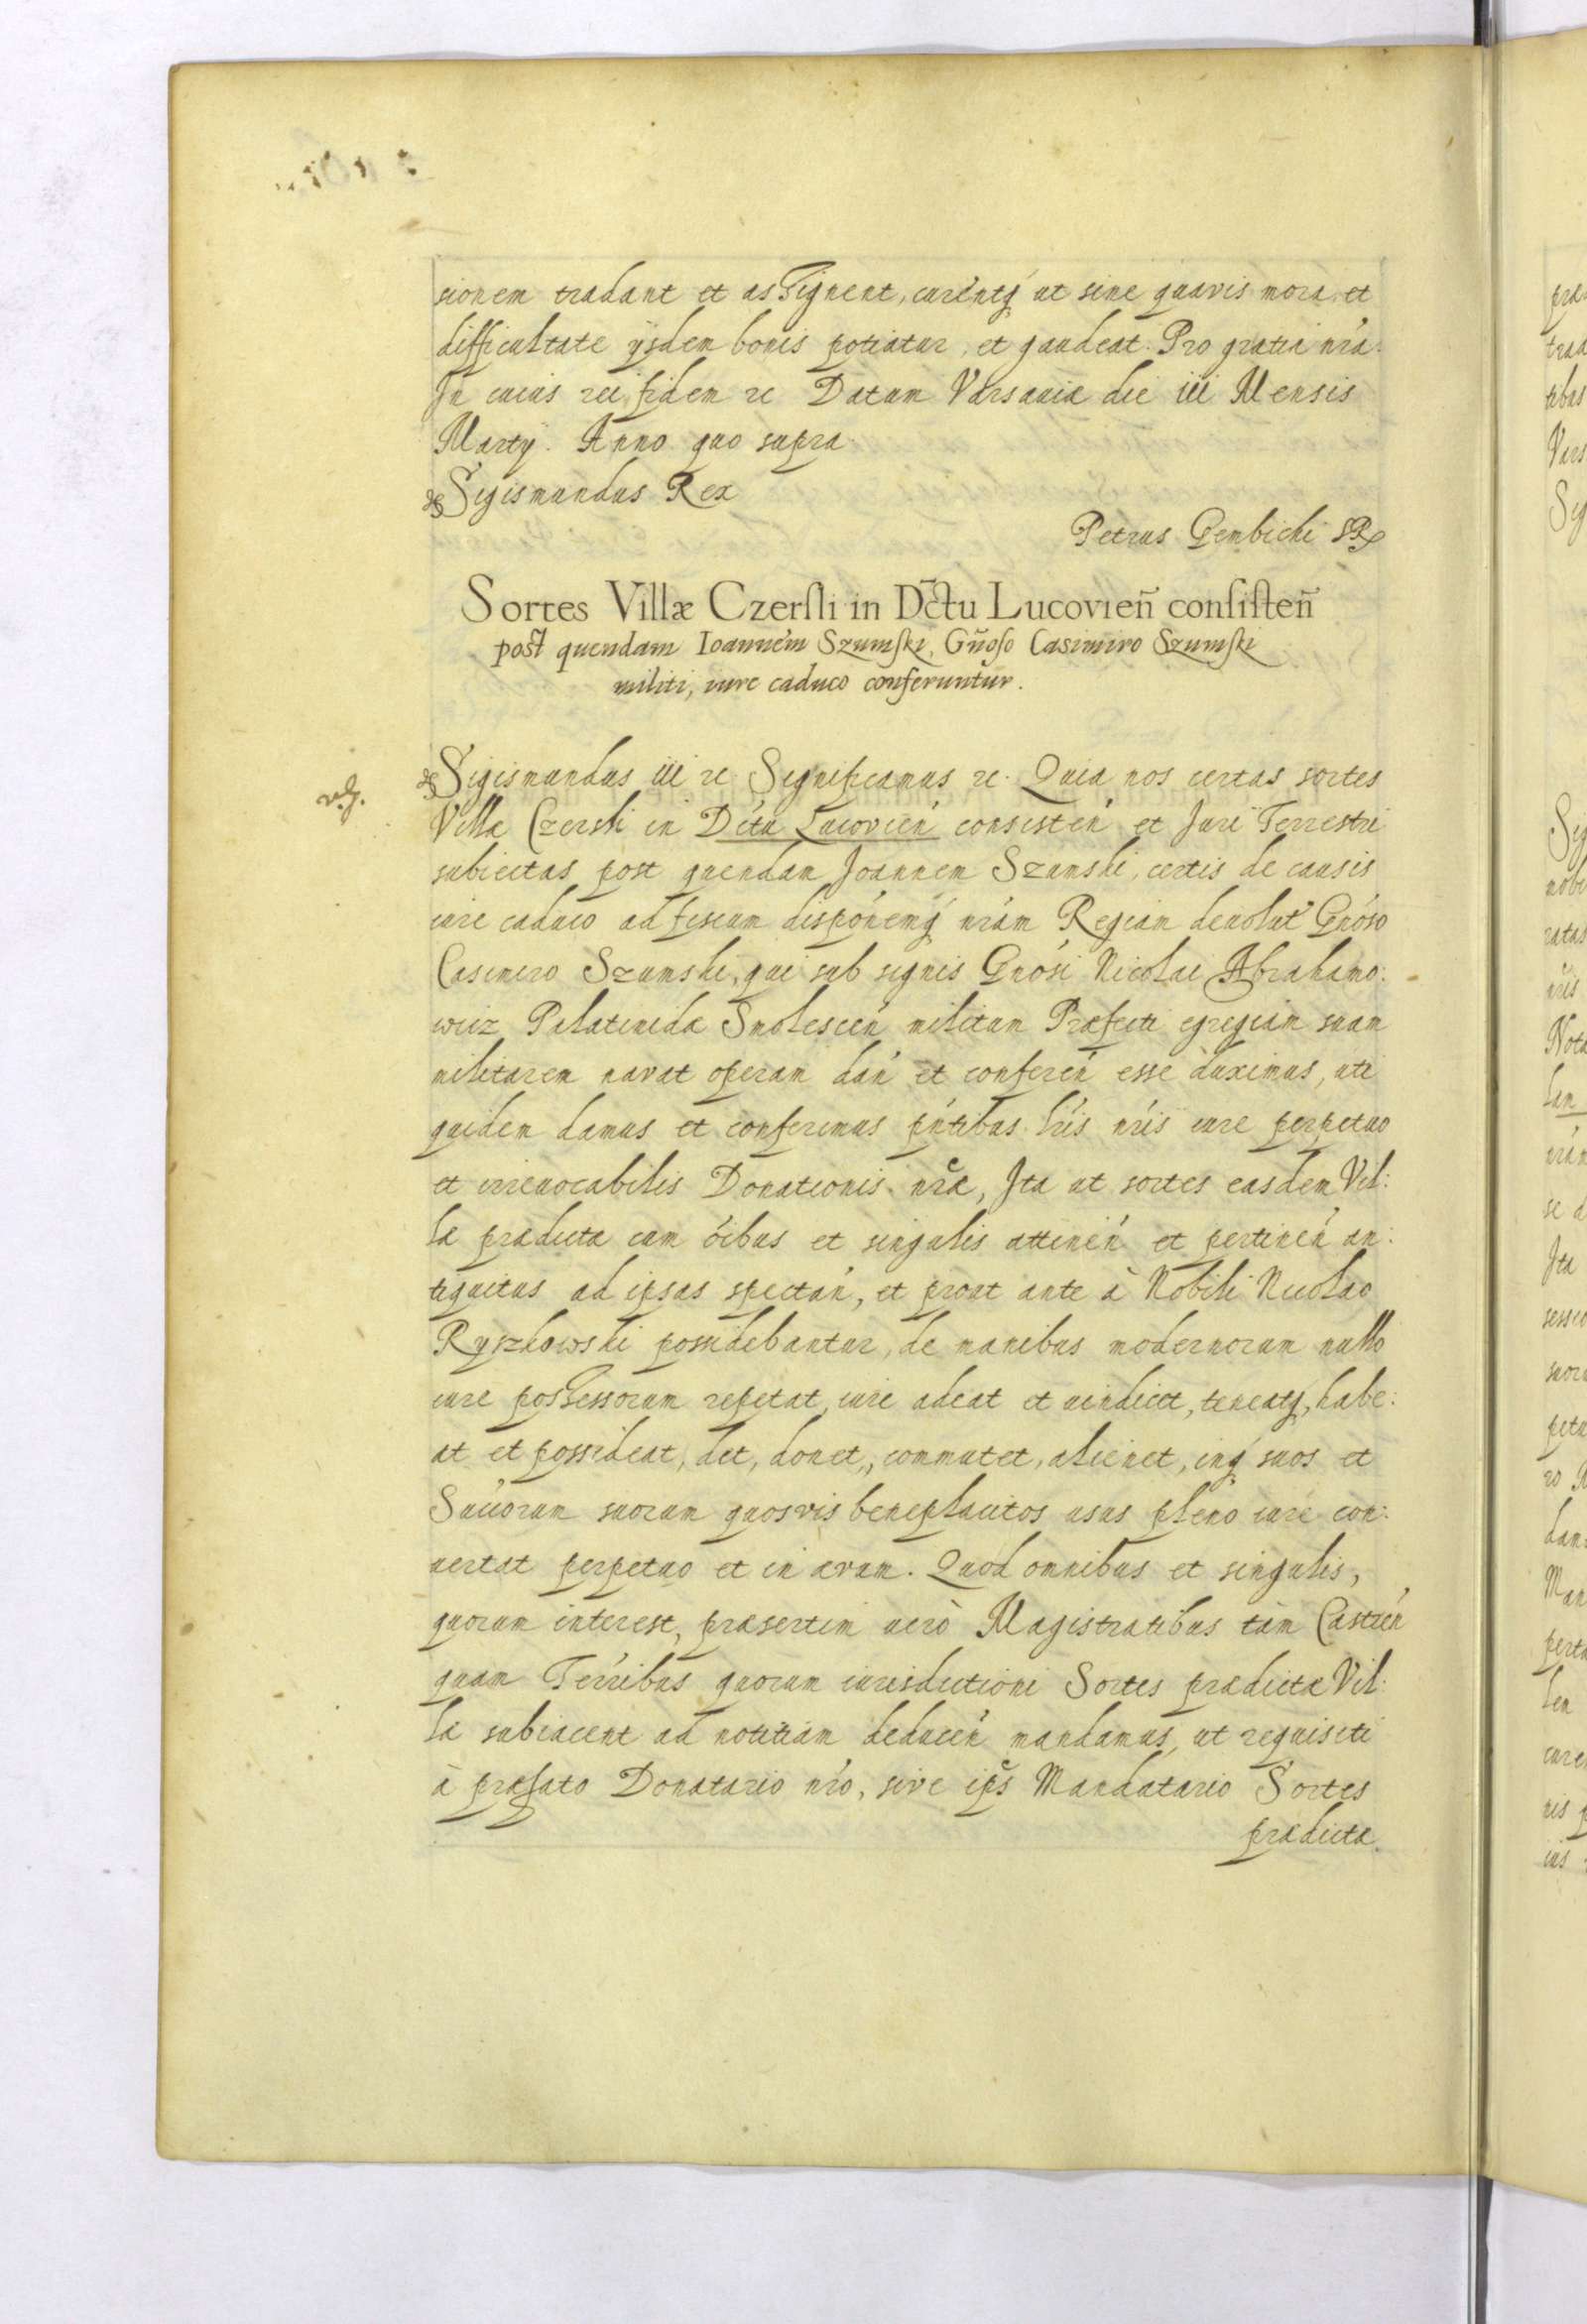 sionem tradant et assignent, curentq́ ut sine quavis mora et
difficultate ijsdem bonis potiatur, et gaudeat. Pro gratia nr̃a.
In cuius rei fidem &c Datum Varsaviæ die iii Mensis
Martij. Anno quo supra
Sigismundus Rex
Petrus Gembicki SR
Sortes Villæ Czerski in Dc̃tu Lucovien̄ consisten̄
post quendam Ioannem Szumski, Gn̄oso Casimiro Szumski
militi, iure caduco conferuntur.
Sigismundus iii &c Significamus &c. Quia nos certas sortes
Villæ Czerski in Dćtu Lucovień consisteń et Juri Terrestri
subiectas post quendam Joannem Szumski, certis de causis
iure caduco ad fiscum dispónemq́ nrám Regiam devolut Gnóso
Casimiro Szumski, qui sub signis Gnósi Nicolai Abrahamo:
wicz Palatinidæ Smolesceń militum Præfecti egregiam suam
militarem navat operam dań et confereń esse duximus, uti
quidem damus et conferimus pńtibus lŕis nŕis iure perpetuo
et irrevocabilis Donationis nr̃æ, Ita ut sortes easdem Vil:
læ prædictæ cum óibus et singulis attineń et pertineń an:
tiquitus ad ipsas spectań, et prout ante à Nobili Nicolao
Ryszkowski possidebantur, de manibus modernorum nullo
iure possessorum repetat, iure adeat et vindicet, teneatq́, habe:
at et possideat, det, donet, commutet, alienet, inq́ suos et
Sućorum suorum quosvis beneplacitos usus pleno iure con:
vertat perpetuo et in ævum. Quod omnibus et singulis,
quorum interest, præsertim verò Magistratibus tàm Castreń
quam Terŕibus quorum iurisdictioni Sortes prædictæ Vil:
læ subiacent ad notitiam deduceń mandamus, ut requisiti
à præfato Donatario nŕo, sive ips̃ Mandatario Sortes
prædictæ